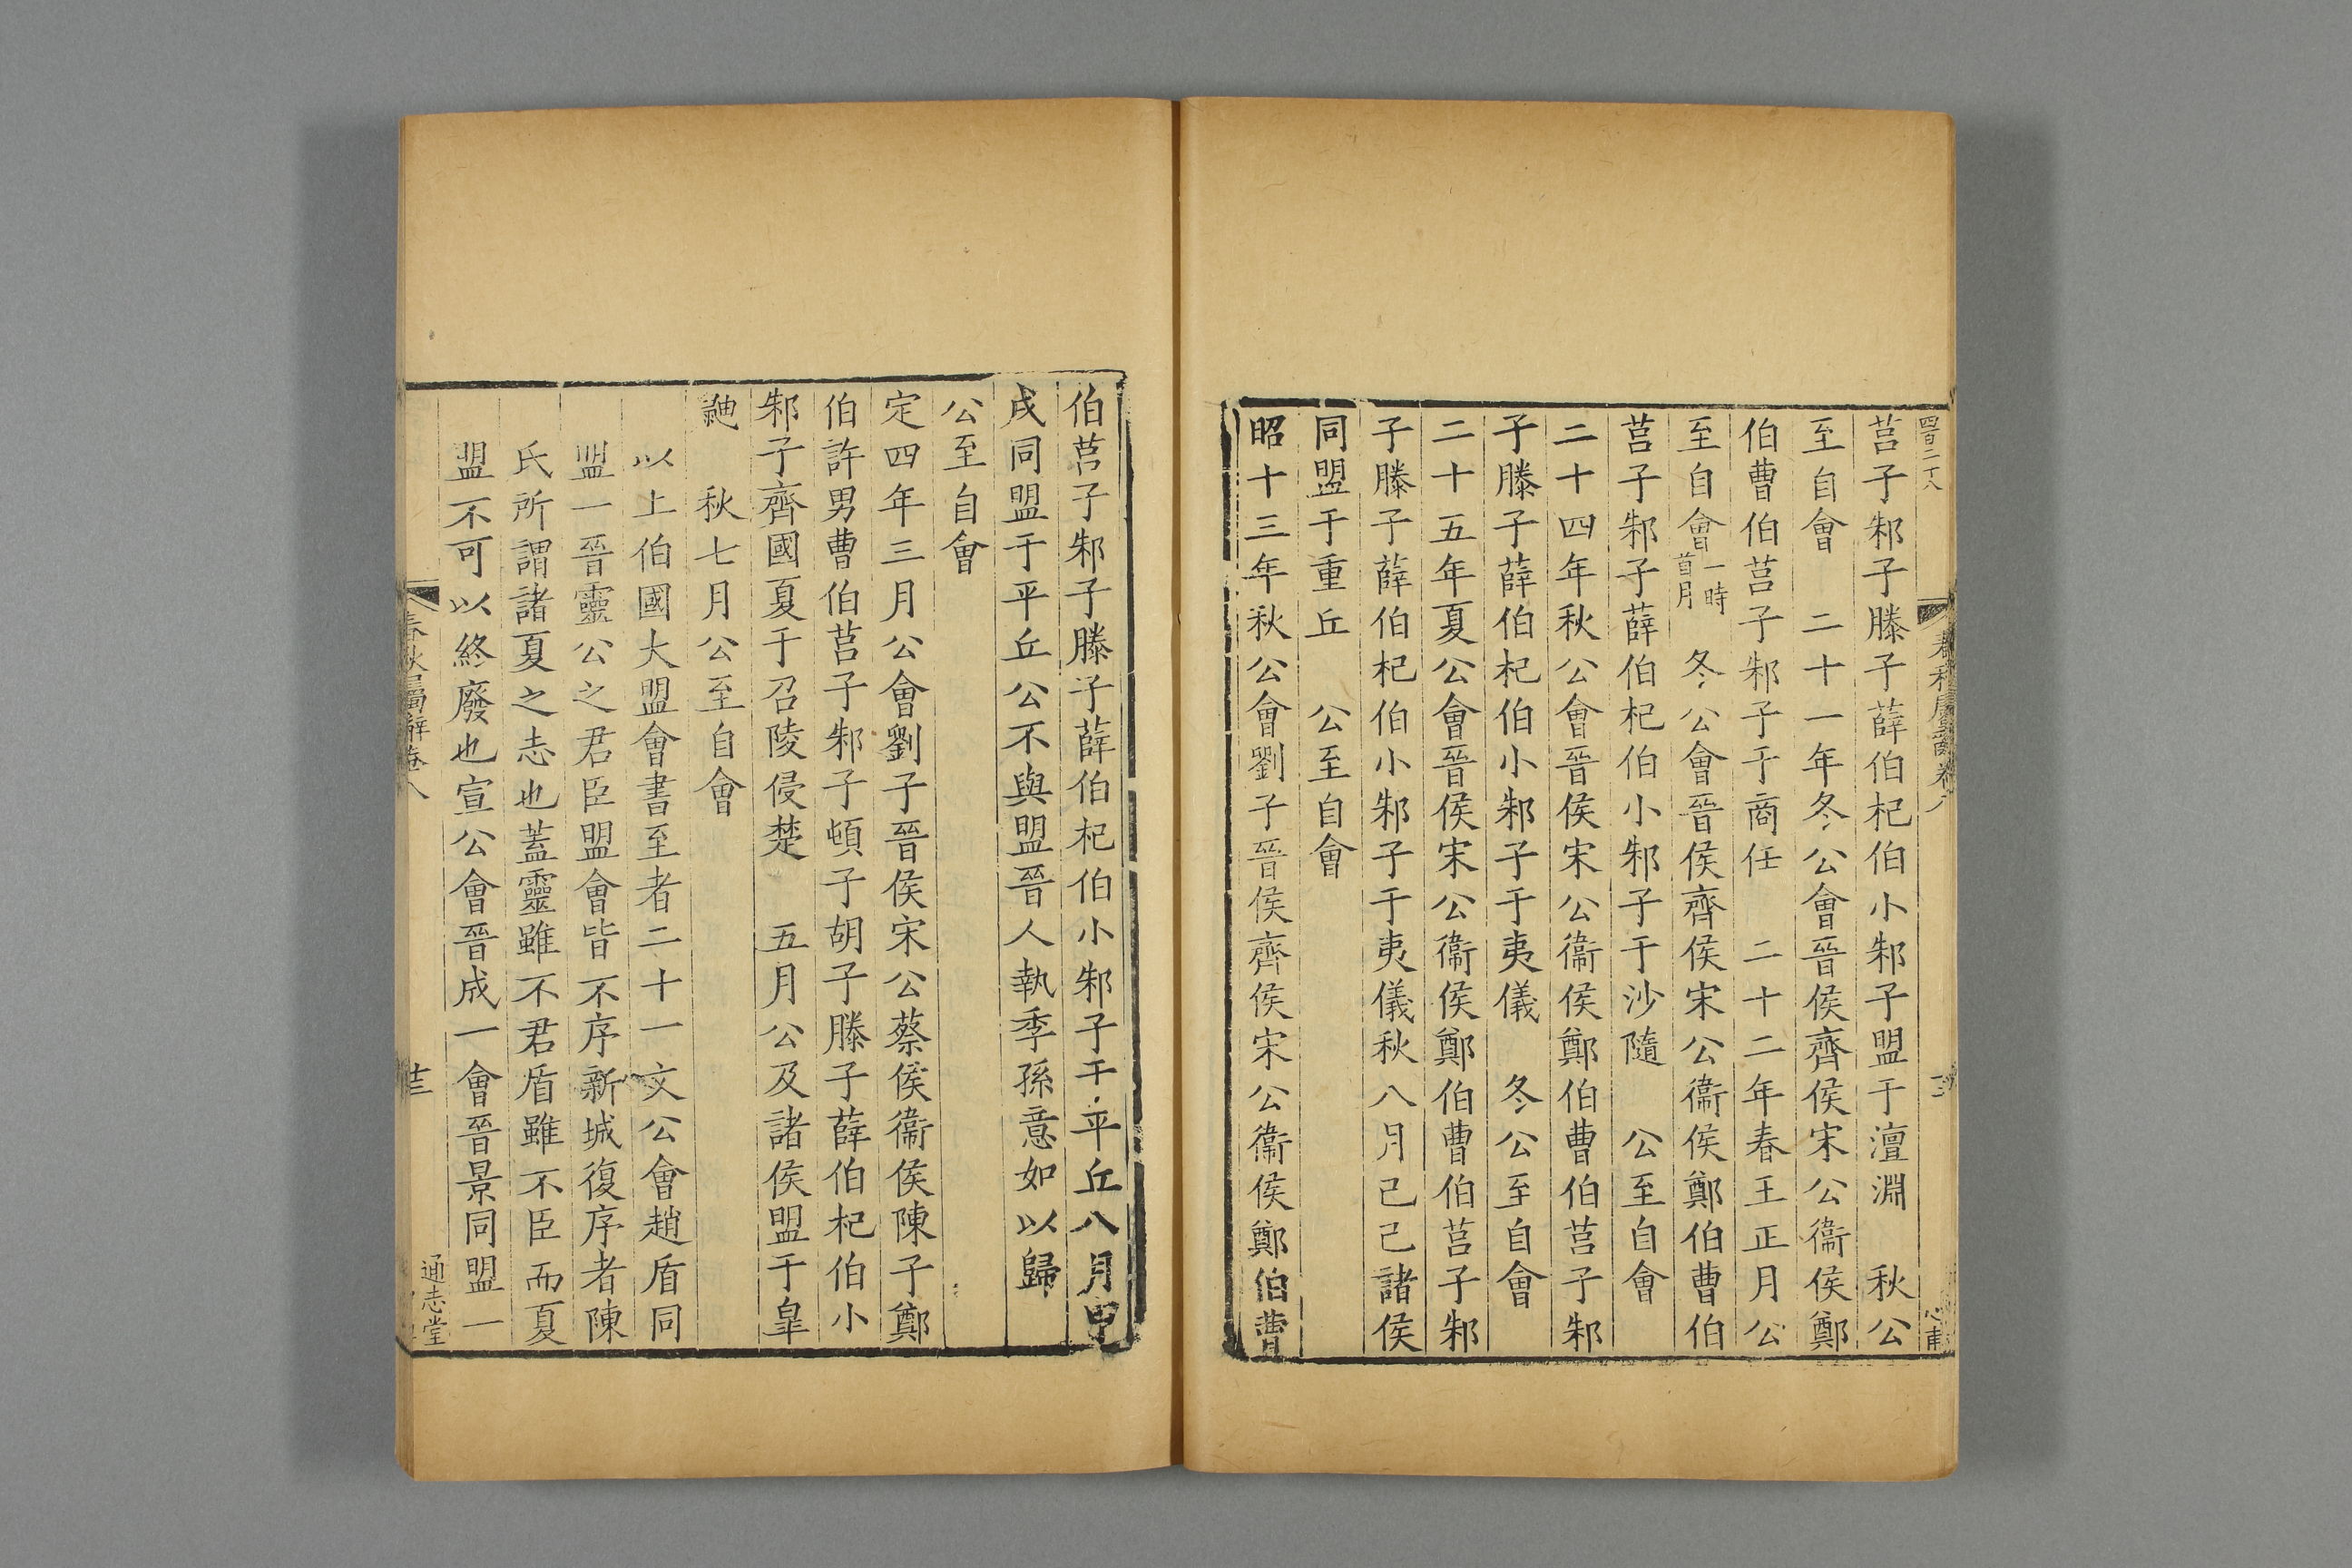 四百二十八
春秋屬辭卷八
莒子邾子滕子薛伯杞伯小邾子盟于澶淵　秋公
至自會　二十一年冬公會晉侯齊侯宋公衞侯鄭
伯曹伯莒子邾子于商任　二十二年春王正月公
至自會一時首月　冬公會晉侯齊侯宋公衞侯鄭伯曹伯
莒子邾子薛伯杞伯小邾子于沙隨　公至自會
二十四年秋公會晉侯宋公衞侯鄭伯曹伯莒子邾
子滕子薛伯杞伯小邾子于夷儀　冬公至自會
二十五年夏公會晉侯宋公衞侯鄭伯曹伯莒子邾
子滕子薛伯杞伯小邾子于夷儀秋八月己巳諸侯
同盟于重丘　公至自會
昭十三年秋公會劉子晉侯齊侯宋公衞侯鄭伯曹
伯莒子邾子滕子薛伯杞伯小邾子于平丘八月甲
戌同盟于平丘公不與盟晉人執季孫意如以歸
公至自會
定四年三月公會劉子晉侯宋公蔡侯衞侯陳子鄭
伯許男曹伯莒子邾子頓子胡子滕子薛伯杞伯小
邾子齊國夏于召陵侵楚　五月公及諸侯盟于皐
鼬　秋七月公至自會
以上伯國大盟會書至者二十一文公會趙盾同
盟一晉靈公之君臣盟會皆不序新城復序者陳
氏所謂諸夏之志也蓋靈雖不君盾雖不臣而夏
盟不可以終廢也宣公會晉成一會晉景同盟一
春秋屬辭卷八
通志堂